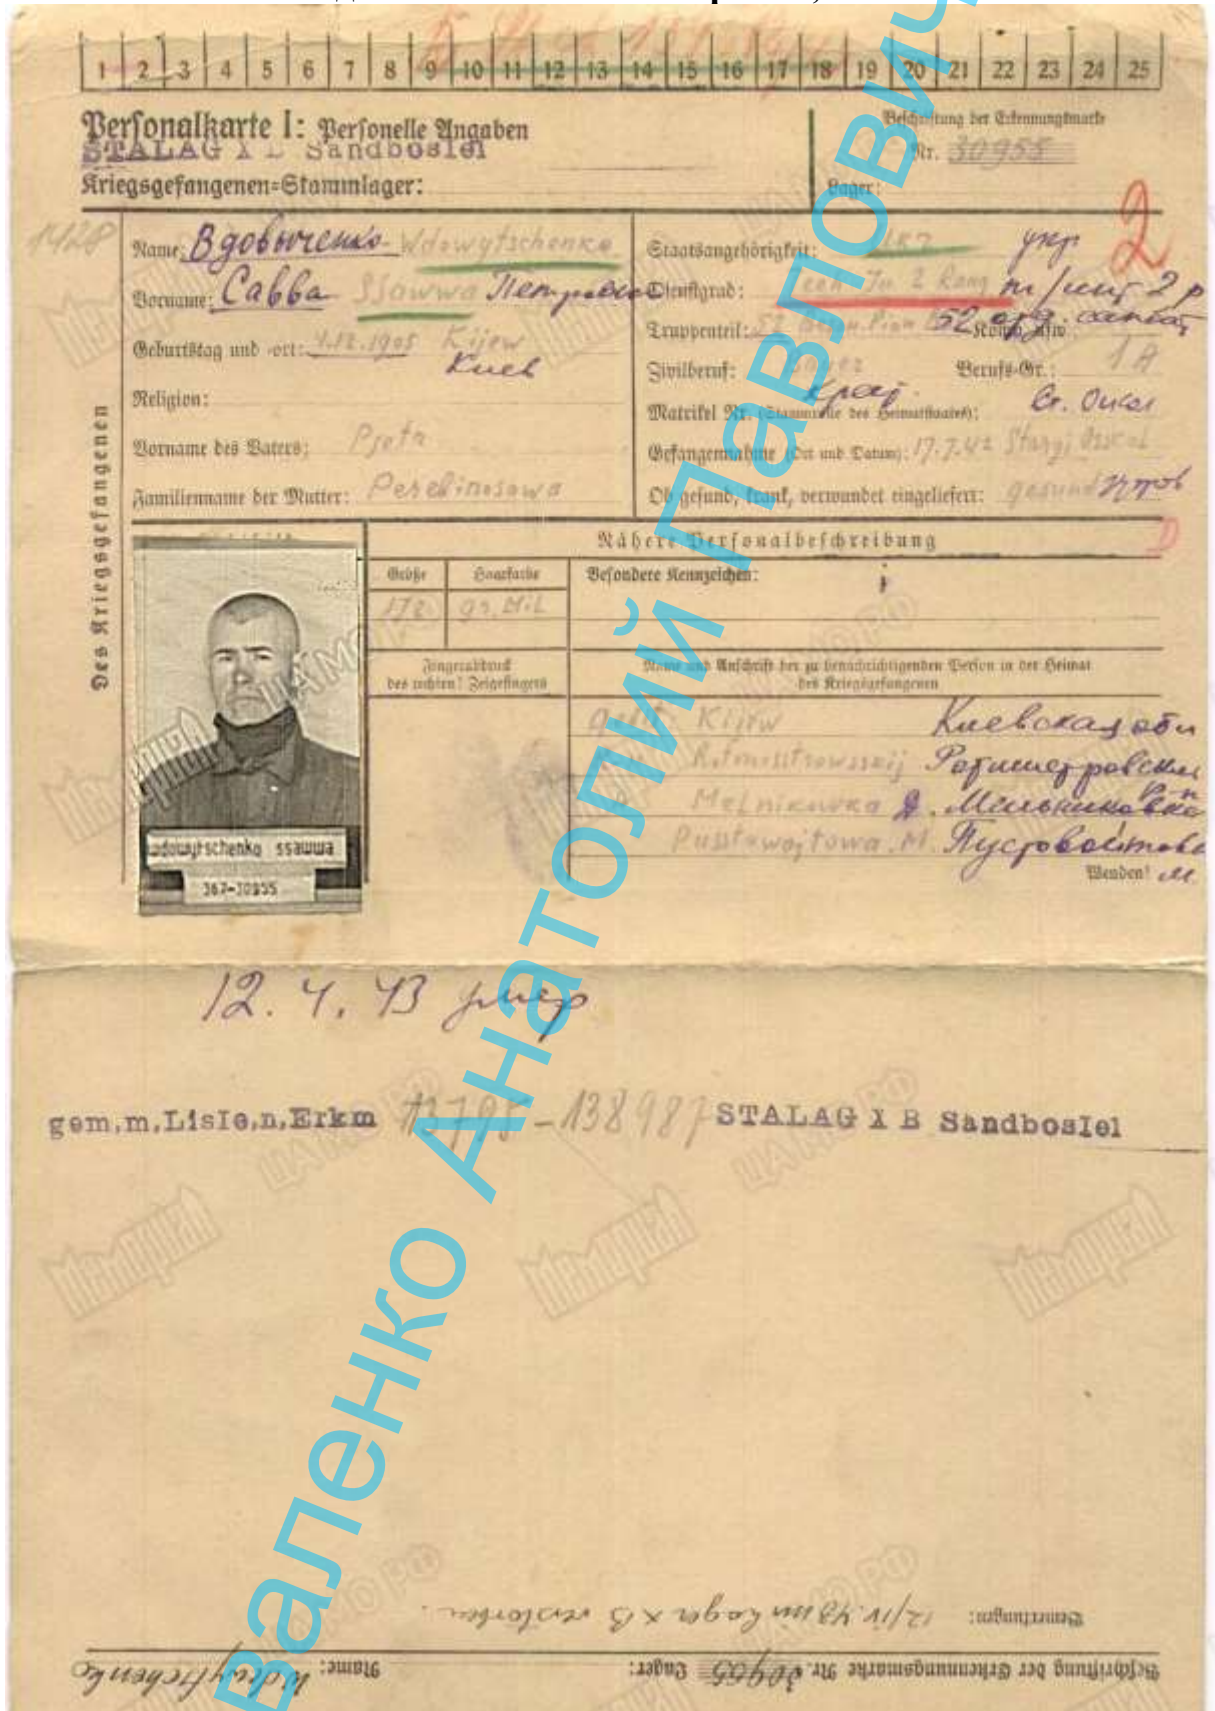 1 2 3 4 5 6 7 8 9 10 11 12 13 14 15 16 17 18 19 20 21 22 23 24 25
Personalkarte I: Personelle Angaben
STALAG X B Sandbostel
Kriegsgefangenen=Stammlager:
Beschriftung der Erkennungsmarke
Nr. 30955
Lager:
1428
2
Des Kriegsgefangenen
Name: Вдовыченко Wdowytschenko
Vorname: Савва Ssawwa Петрович
Geburtstag und -ort: 4.12.1905 Kijew
Киев
Religion:
Vorname des Vaters: Pjotr
Familienname der Mutter: Perebinosowa
Staatsangehörigkeit: укр
Dienstgrad: tech In 2 Rang т/инт 2 р
Truppenteil: 52 Komp. usw.: 52 отд. сапбат
Zivilberuf: Berufs-Gr.: 1A
Matrikel Nr. (Stammrolle des Heimatstaates): Ст. Оскол
Gefangennahme (Ort und Datum): 17.7.42 Staryj Osskol
Ob gesund, krank, verwundet eingeliefert: gesund здоров
Nähere Personalbeschreibung
D
Größe Haarfarbe Besondere Kennzeichen:
172
Fingerabdruck
des rechten! Zeigefingers
Name und Anschrift der zu benachrichtigenden Person in der Heimat
des Kriegsgefangenen
Kijew Киевская обл
Rotmisstrowsskij Ротмистровский
р-н
Melnikowka д. Мельниковка
Pusstowojtowa. M. Пустовойтова
Wenden! М.
Wdowytschenko Ssawwa
367-30955
12. 4. 43 умер
gem.m.Liste.n.Erkm 13795-138987 STALAG X B Sandbostel
Bemerkungen: 12/IV.43 im Lager X B verstorben.
Beschriftung der Erkennungsmarke Nr. 30955 Lager: Name: Wdowytschenko
валенко Анатолий Павлович
Мемориал
ЦАМО РФ